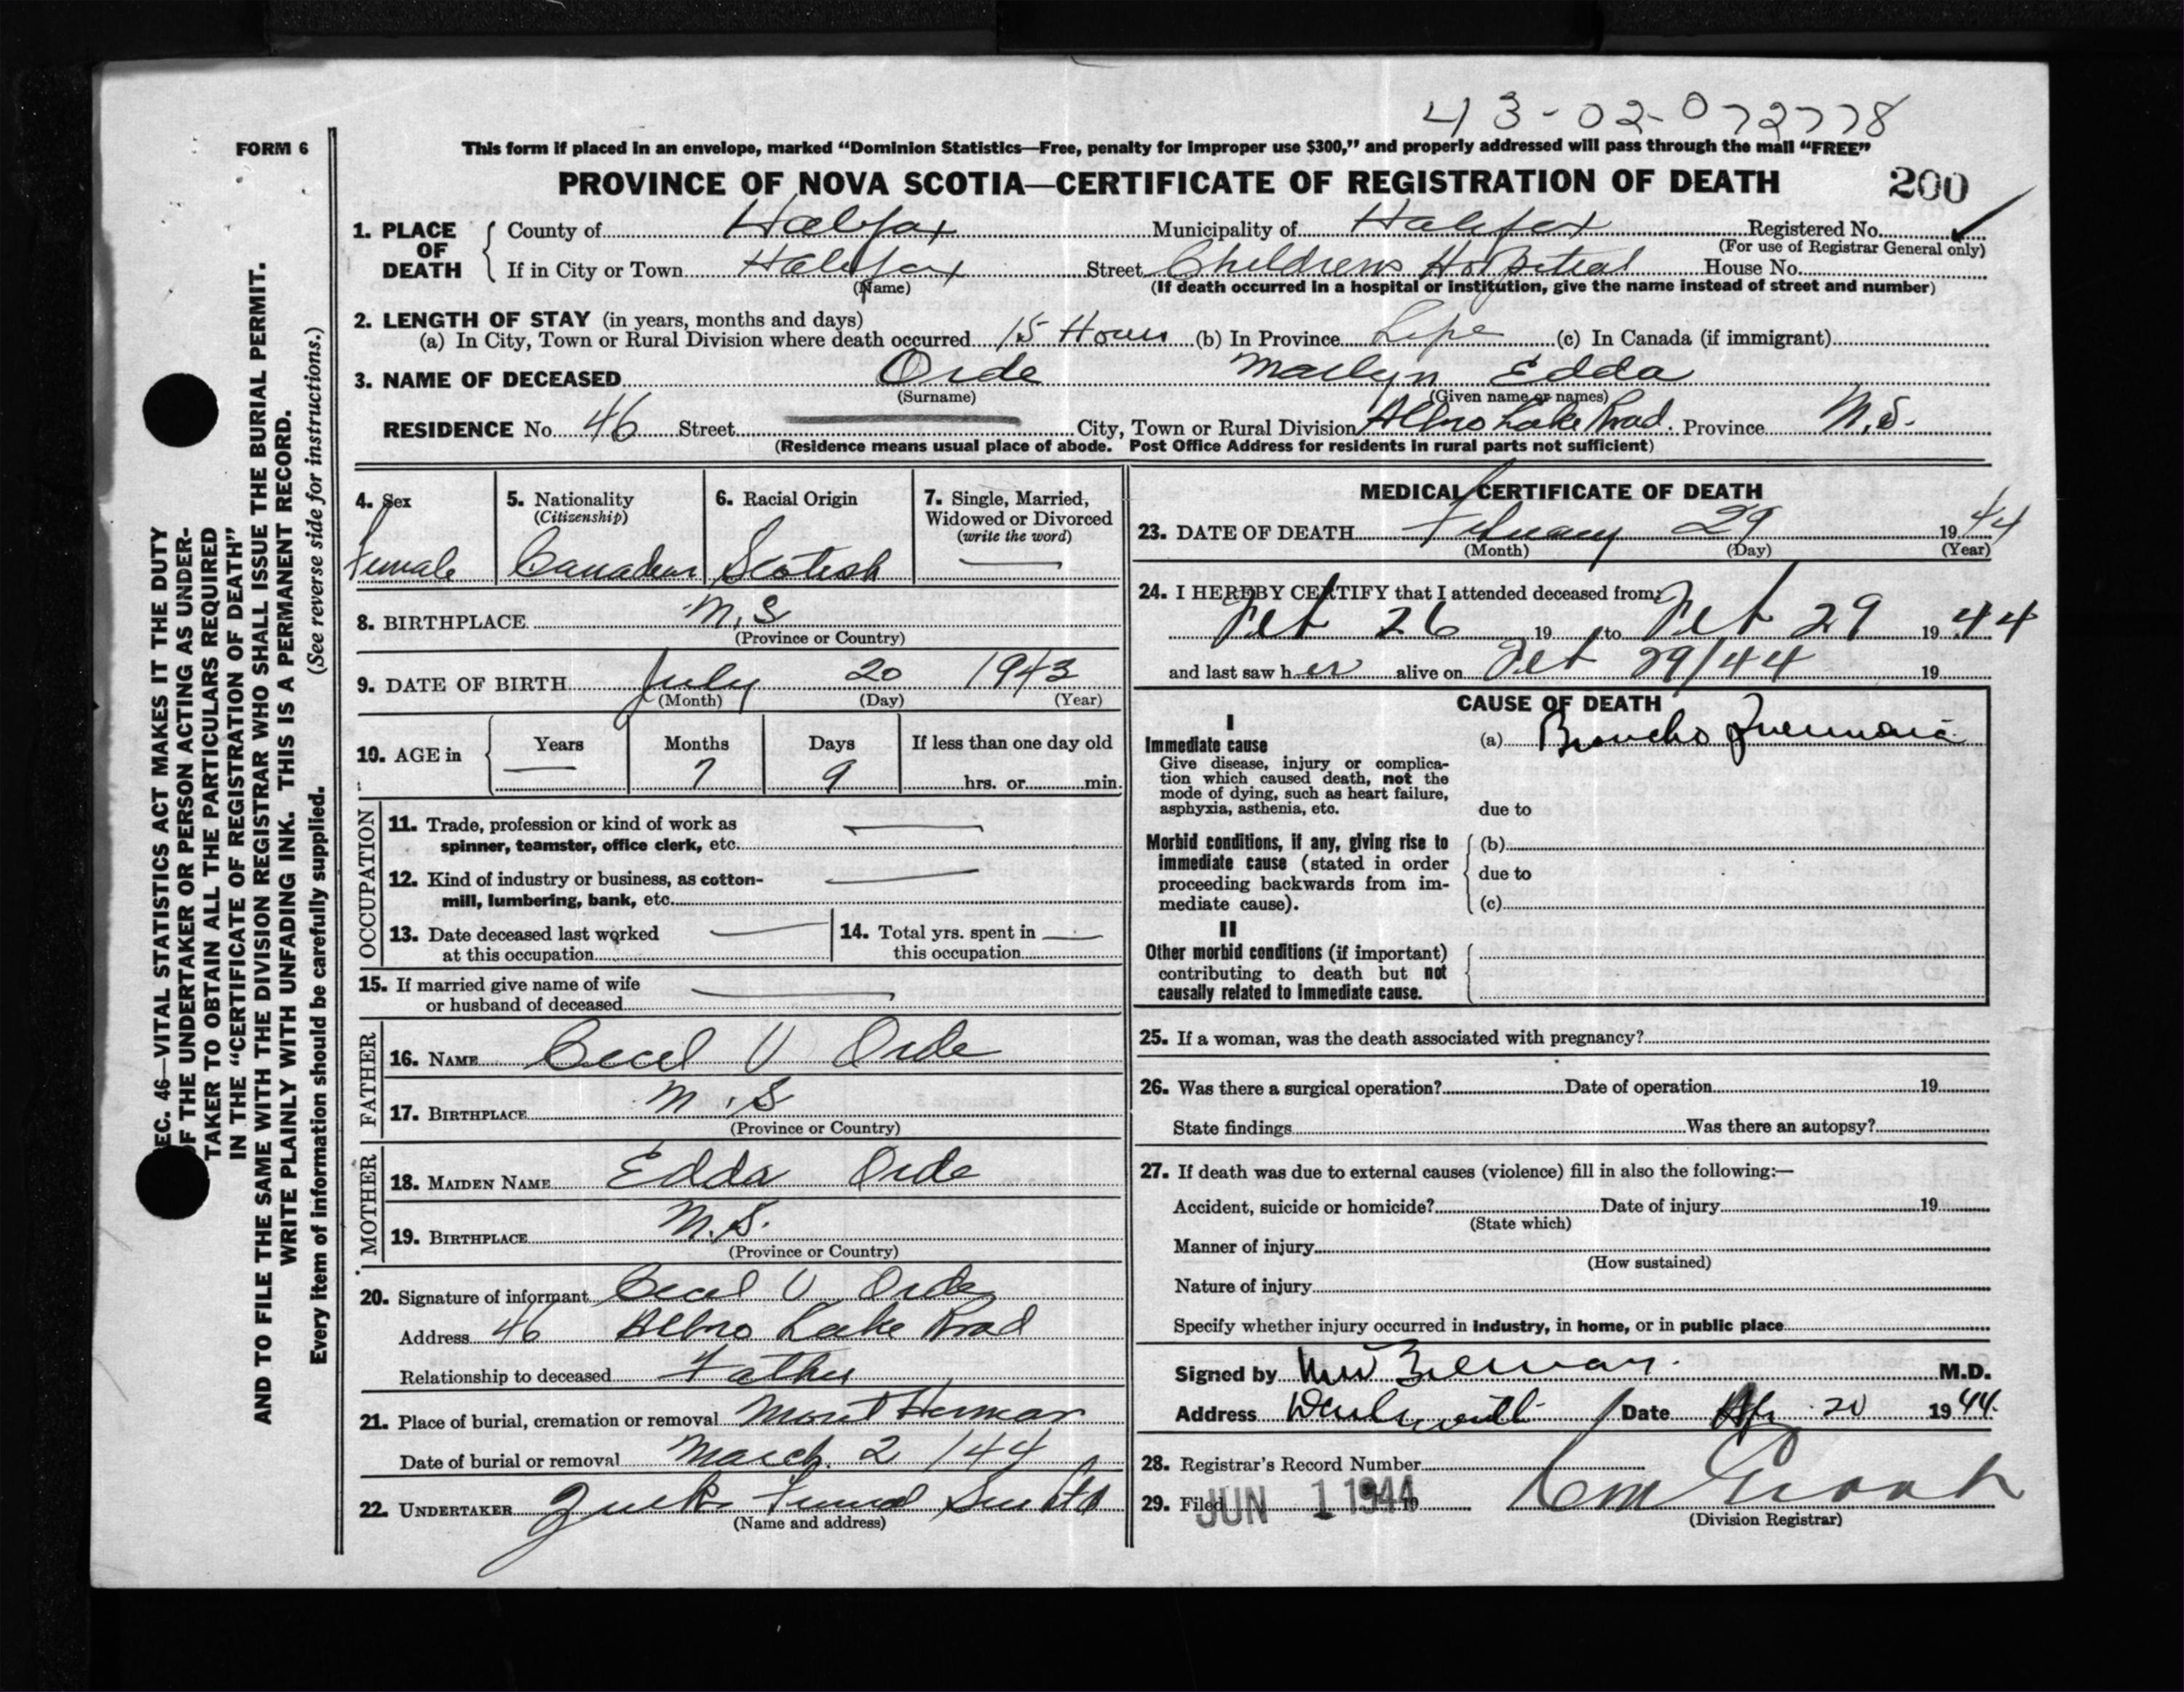 43-02-072778
FORM 6
This form if placed in an envelope, marked “Dominion Statistics—Free, penalty for improper use $300,” and properly addressed will pass through the mail “FREE”
PROVINCE OF NOVA SCOTIA—CERTIFICATE OF REGISTRATION OF DEATH 200
1. PLACE OF DEATH { County of Halifax Municipality of Halifax Registered No.
(For use of Registrar General only)
If in City or Town Halifax Street Childrens Hospital House No.
(Name) (If death occurred in a hospital or institution, give the name instead of street and number)
2. LENGTH OF STAY (in years, months and days)
(a) In City, Town or Rural Division where death occurred 15 Hours (b) In Province Life (c) In Canada (if immigrant)
3. NAME OF DECEASED Orde Marlyn Edda
(Surname) (Given name or names)
RESIDENCE No. 46 Street City, Town or Rural Division Albro Lake Road. Province N.S.
(Residence means usual place of abode. Post Office Address for residents in rural parts not sufficient)
4. Sex
Female
5. Nationality
(Citizenship)
Canadian
6. Racial Origin
Scotish
7. Single, Married,
Widowed or Divorced
(write the word)
8. BIRTHPLACE N.S
(Province or Country)
9. DATE OF BIRTH July 20 1943
(Month) (Day) (Year)
10. AGE in { Years Months Days If less than one day old
7 9 hrs. or min.
OCCUPATION
11. Trade, profession or kind of work as
spinner, teamster, office clerk, etc.
12. Kind of industry or business, as cotton-
mill, lumbering, bank, etc.
13. Date deceased last worked
at this occupation
14. Total yrs. spent in
this occupation
15. If married give name of wife
or husband of deceased
FATHER
16. NAME Cecil V Orde
17. BIRTHPLACE N.S
(Province or Country)
MOTHER
18. MAIDEN NAME Edda Orde
19. BIRTHPLACE N.S.
(Province or Country)
20. Signature of informant Cecil V Orde
Address 46 Albro Lake Road
Relationship to deceased Father
21. Place of burial, cremation or removal Mount Herman
Date of burial or removal March 2 /44
22. UNDERTAKER Funeral
(Name and address)
MEDICAL CERTIFICATE OF DEATH
23. DATE OF DEATH February 29 1944
(Month) (Day) (Year)
24. I HEREBY CERTIFY that I attended deceased from:
Feb 26 19 to Feb 29 1944
and last saw her alive on Feb 29/44 19
CAUSE OF DEATH
I
Immediate cause
Give disease, injury or complica-
tion which caused death, not the
mode of dying, such as heart failure,
asphyxia, asthenia, etc.
(a) Broncho Pneumonia
due to
Morbid conditions, if any, giving rise to
immediate cause (stated in order
proceeding backwards from im-
mediate cause).
(b)
due to
(c)
II
Other morbid conditions (if important)
contributing to death but not
causally related to immediate cause.
25. If a woman, was the death associated with pregnancy?
26. Was there a surgical operation? Date of operation 19
State findings Was there an autopsy?
27. If death was due to external causes (violence) fill in also the following:—
Accident, suicide or homicide? Date of injury 19
(State which)
Manner of injury
(How sustained)
Nature of injury
Specify whether injury occurred in industry, in home, or in public place
Signed by M.D.
Address Dartmouth Date Apr 20 1944.
28. Registrar's Record Number
29. Filed JUN 1 1944 19
(Division Registrar)
SEC. 46—VITAL STATISTICS ACT MAKES IT THE DUTY
OF THE UNDERTAKER OR PERSON ACTING AS UNDER-
TAKER TO OBTAIN ALL THE PARTICULARS REQUIRED
IN THE “CERTIFICATE OF REGISTRATION OF DEATH”
AND TO FILE THE SAME WITH THE DIVISION REGISTRAR WHO SHALL ISSUE THE BURIAL PERMIT.
WRITE PLAINLY WITH UNFADING INK. THIS IS A PERMANENT RECORD.
Every item of information should be carefully supplied. (See reverse side for instructions.)